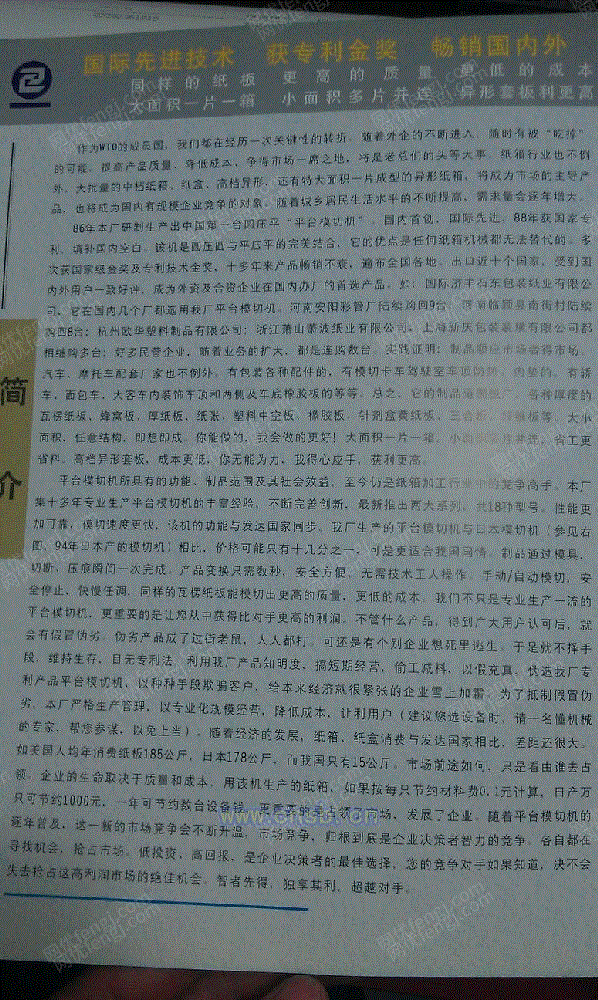 国际先进技术 获专利金奖 畅销国内外
同样的纸板 更高的质量 更低的成本
大面积一片一箱 小面积多片并连 异形套板利更高
简介
作为WTO的成员国，我们都在经历一次关键性的转折。随着外企的不断进入，随时有被“吃掉”
的可能。提高产品质量，降低成本，争得市场一席之地，将是老总们的头等大事。纸箱行业也不例
外。大批量的中档纸箱、纸盒、高档异形，还有特大面积一片成型的异形纸箱，将成为市场的主导产
品，也将成为国内有规模企业竞争的对象。随着城乡居民生活水平的不断提高，需求量会逐年增大。
86年本厂研制生产出中国第一台四压平“平台模切机”，国内首创，国际先进。88年获国家专
利，填补国内空白。该机是圆压圆与平压平的完美结合，它的优点是任何纸箱机械都无法替代的。多
次获国家纸金奖及专利技术金奖，十多年来产品畅销不衰，遍布全国各地，出口近十个国家，受到国
内外用户一致好评，成为外资及合资企业在国内办厂的首选产品。如：国际济丰 包装纸业有限公
司，它在国内几个厂都选用我厂平台模切机。河南安阳彩管厂陆续购回9台， 临颍县南街村陆续
购回8台；杭州欧华塑料制品有限公司；浙江萧山萧波纸业有限公司，上海新庆包装装潢有限公司都
相继购多台；好多民营企业，随着业务的扩大，都是连购数台。实践证明：制品顺应市场者得市场。
汽车、摩托车配套厂家也不例外。有包装各种配件的，有模切卡车驾驶室 的。有轿
车、面包车、大客车内装饰车顶和两侧及车底橡胶板的等等。总之，它的制品范围很广，各种厚度的
瓦楞纸板、蜂窝板、厚纸板、纸张、塑料中空板、橡胶板、针剂盒黄纸板、三合板、 板等。大小
面积，任意结构，即想即成。你能做的，我会做的更好！大面积一片一箱，小面积多片并连，省工更
省料。高档异形套板，成本更低，你无能为力，我得心应手，获利更高。
平台模切机所具有的功能、制品范围及其社会效益，至今仍是纸箱加工行业中的竞争高手。本厂
集十多年专业生产平台模切机的丰富经验，不断完善创新，最新推出两大系列，共18种型号。性能更
加可靠，模切速度更快，该机的功能与发达国家同步。我厂生产的平台模切机与日本模切机（参见右
图，94年日本产的模切机）相比，价格可能只有十几分之一，可是更适合我国国情。制品通过模具，
切断、压痕瞬间一次完成。产品变换只需数秒，安全方便，无需技术工人操作。手动/自动模切，安
全停止，快慢任调。同样的瓦楞纸板能模切出更高的质量，更低的成本。我们不只是专业生产一流的
平台模切机，更重要的是让您从中获得比对手更高的利润。不管什么产品，得到广大用户认可后，就
会有假冒伪劣。伪劣产品成了过街老鼠，人人都打。可还是有个别企业想死里逃生，于是就不择手
段，维持生存，目无专利法，利用我厂产品知明度，搞短期经营，偷工减料，以假充真，仿造我厂专
利产品平台模切机，以种种手段欺骗客户，给本来经济就很紧张的企业雪上加霜。为了抵制假冒伪
劣，本厂严格生产管理，以专业化规模经营，降低成本，让利用户（建议您选设备时，请一名懂机械
的专家，帮您参谋，以免上当）。随着经济的发展，纸箱、纸盒消费与发达国家相比，差距还很大。
如美国人均年消费纸板185公斤，日本178公斤，而我国只有15公斤。市场前途如何，只是看由谁去占
领。企业的生命取决于质量和成本，用该机生产的纸箱，如果按每只节约材料费0.1元计算，日产万
只可节约1000元，一年可节约数台设备钱，更重要的是占领了市场，发展了企业。随着平台模切机的
逐年普及，这一新的市场竞争会不断升温。市场竞争，归根到底是企业决策者智力的竞争。各自都在
寻找机会，抢占市场。低投资，高回报，是企业决策者的最佳选择，您的竞争对手如果知道，决不会
失去抢占这高利润市场的绝佳机会。智者先得，独享其利，超越对手。